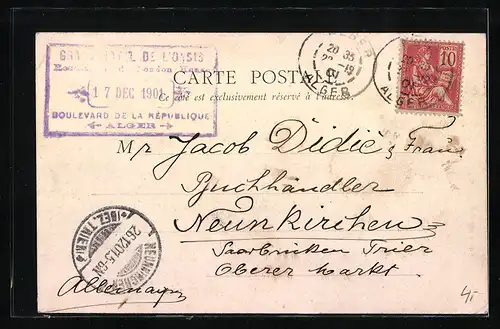 GRAND HOTEL DE L'OASIS
17 DEC 1901
BOULEVARD DE LA RÉPUBLIQUE
ALGER
CARTE POSTALE
Ce côté est exclusivement réservé à l'adresse
ALGER
ALGER
POSTES
10
Mr Jacob Didie & Frau
Buchhändler
Neunkirchen
Saarbrüken Trier
Oberer Markt
Allemagne
NEUNKIRCHEN
26.12.01.5-6N
*(BEZ. TRIER)*